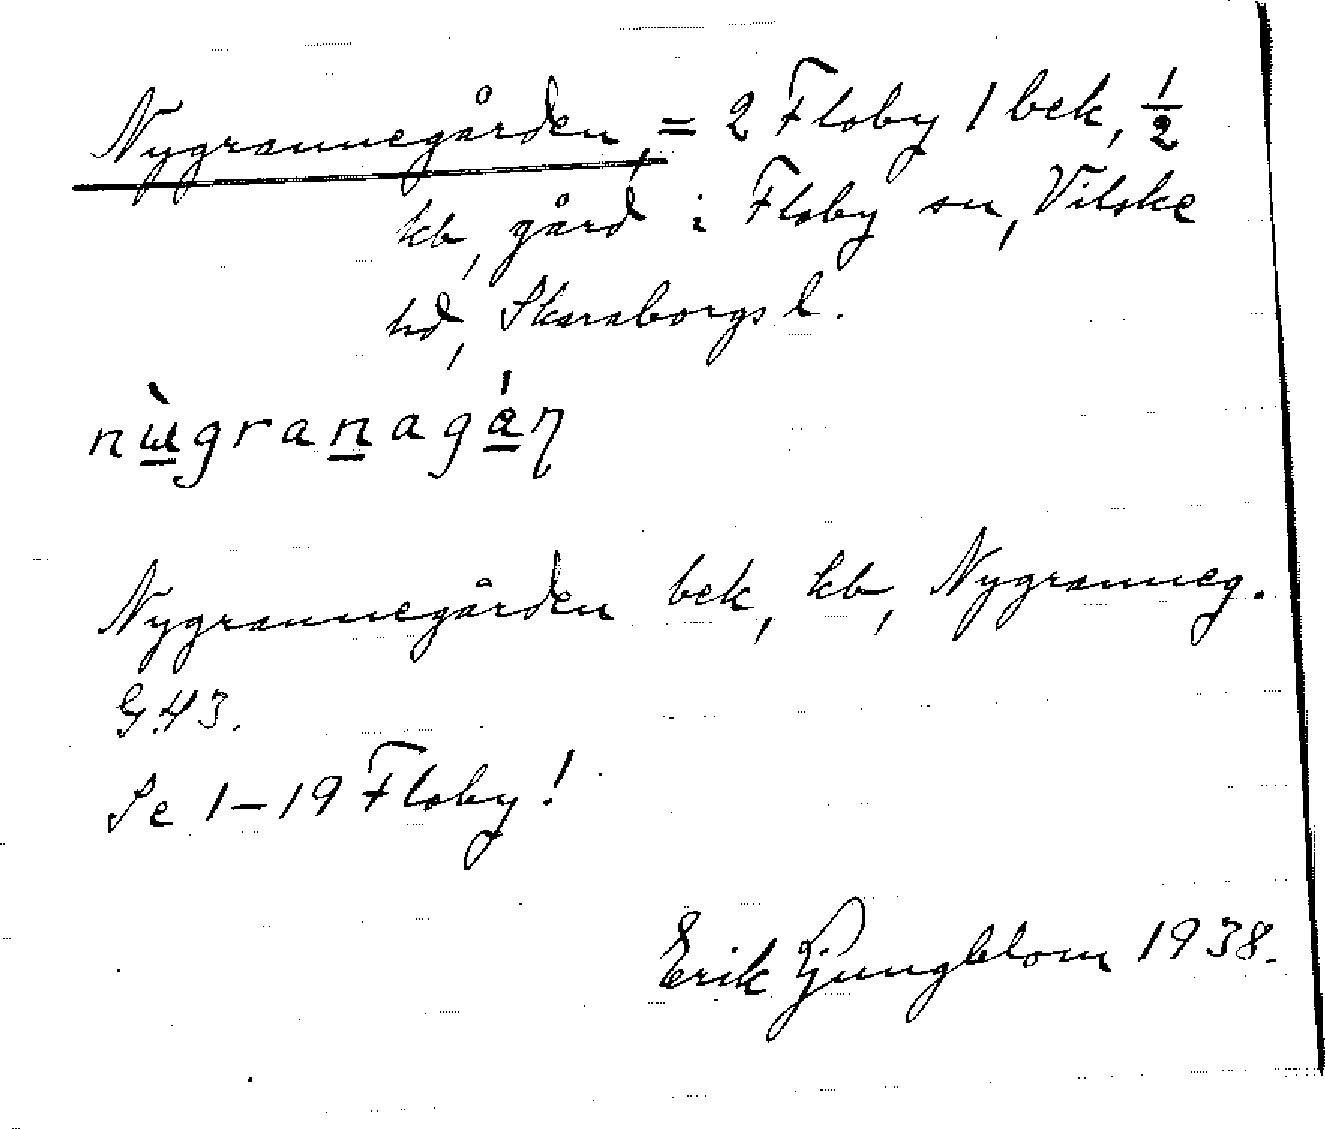 Nygrannegården, = 2 Floby 1 bek, 1/2
kb, gård i Floby sn, Vilske
hd, Skaraborgs l.
nùgranagán
Nygrannegården bek, kb, Nygranneg.
G.43.
Se 1-19 Floby!
Erik Ljungblom 1938.